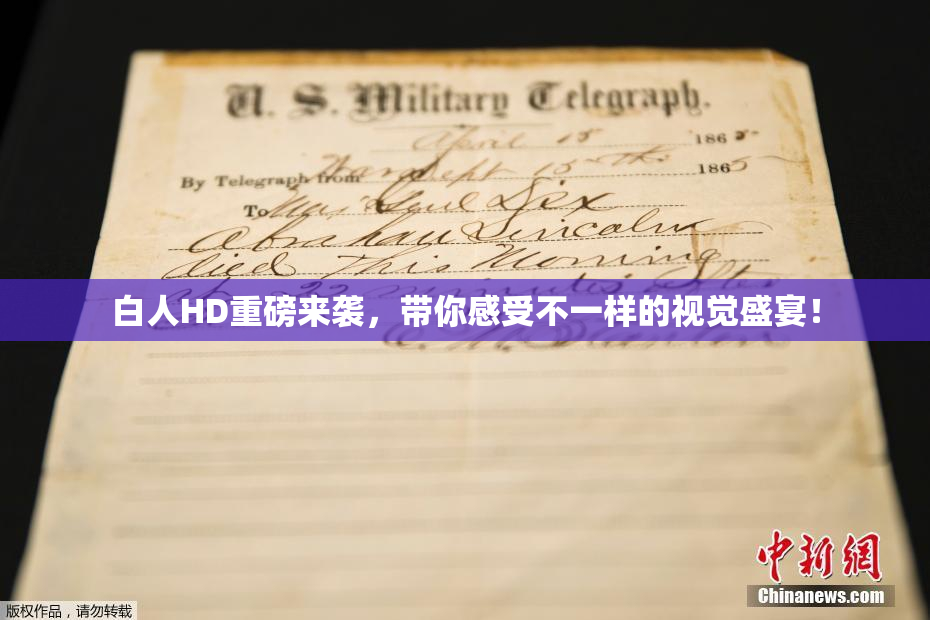 U. S. Military Telegraph.
April 15 1865
By Telegraph from War Dept 15th 1865
To Maj Genl Dix
Abraham Lincoln
died This Morning
at 22 minutes after
白人HD重磅来袭，带你感受不一样的视觉盛宴！
E. M. Stanton
中新网
Chinanews.com
版权作品，请勿转载